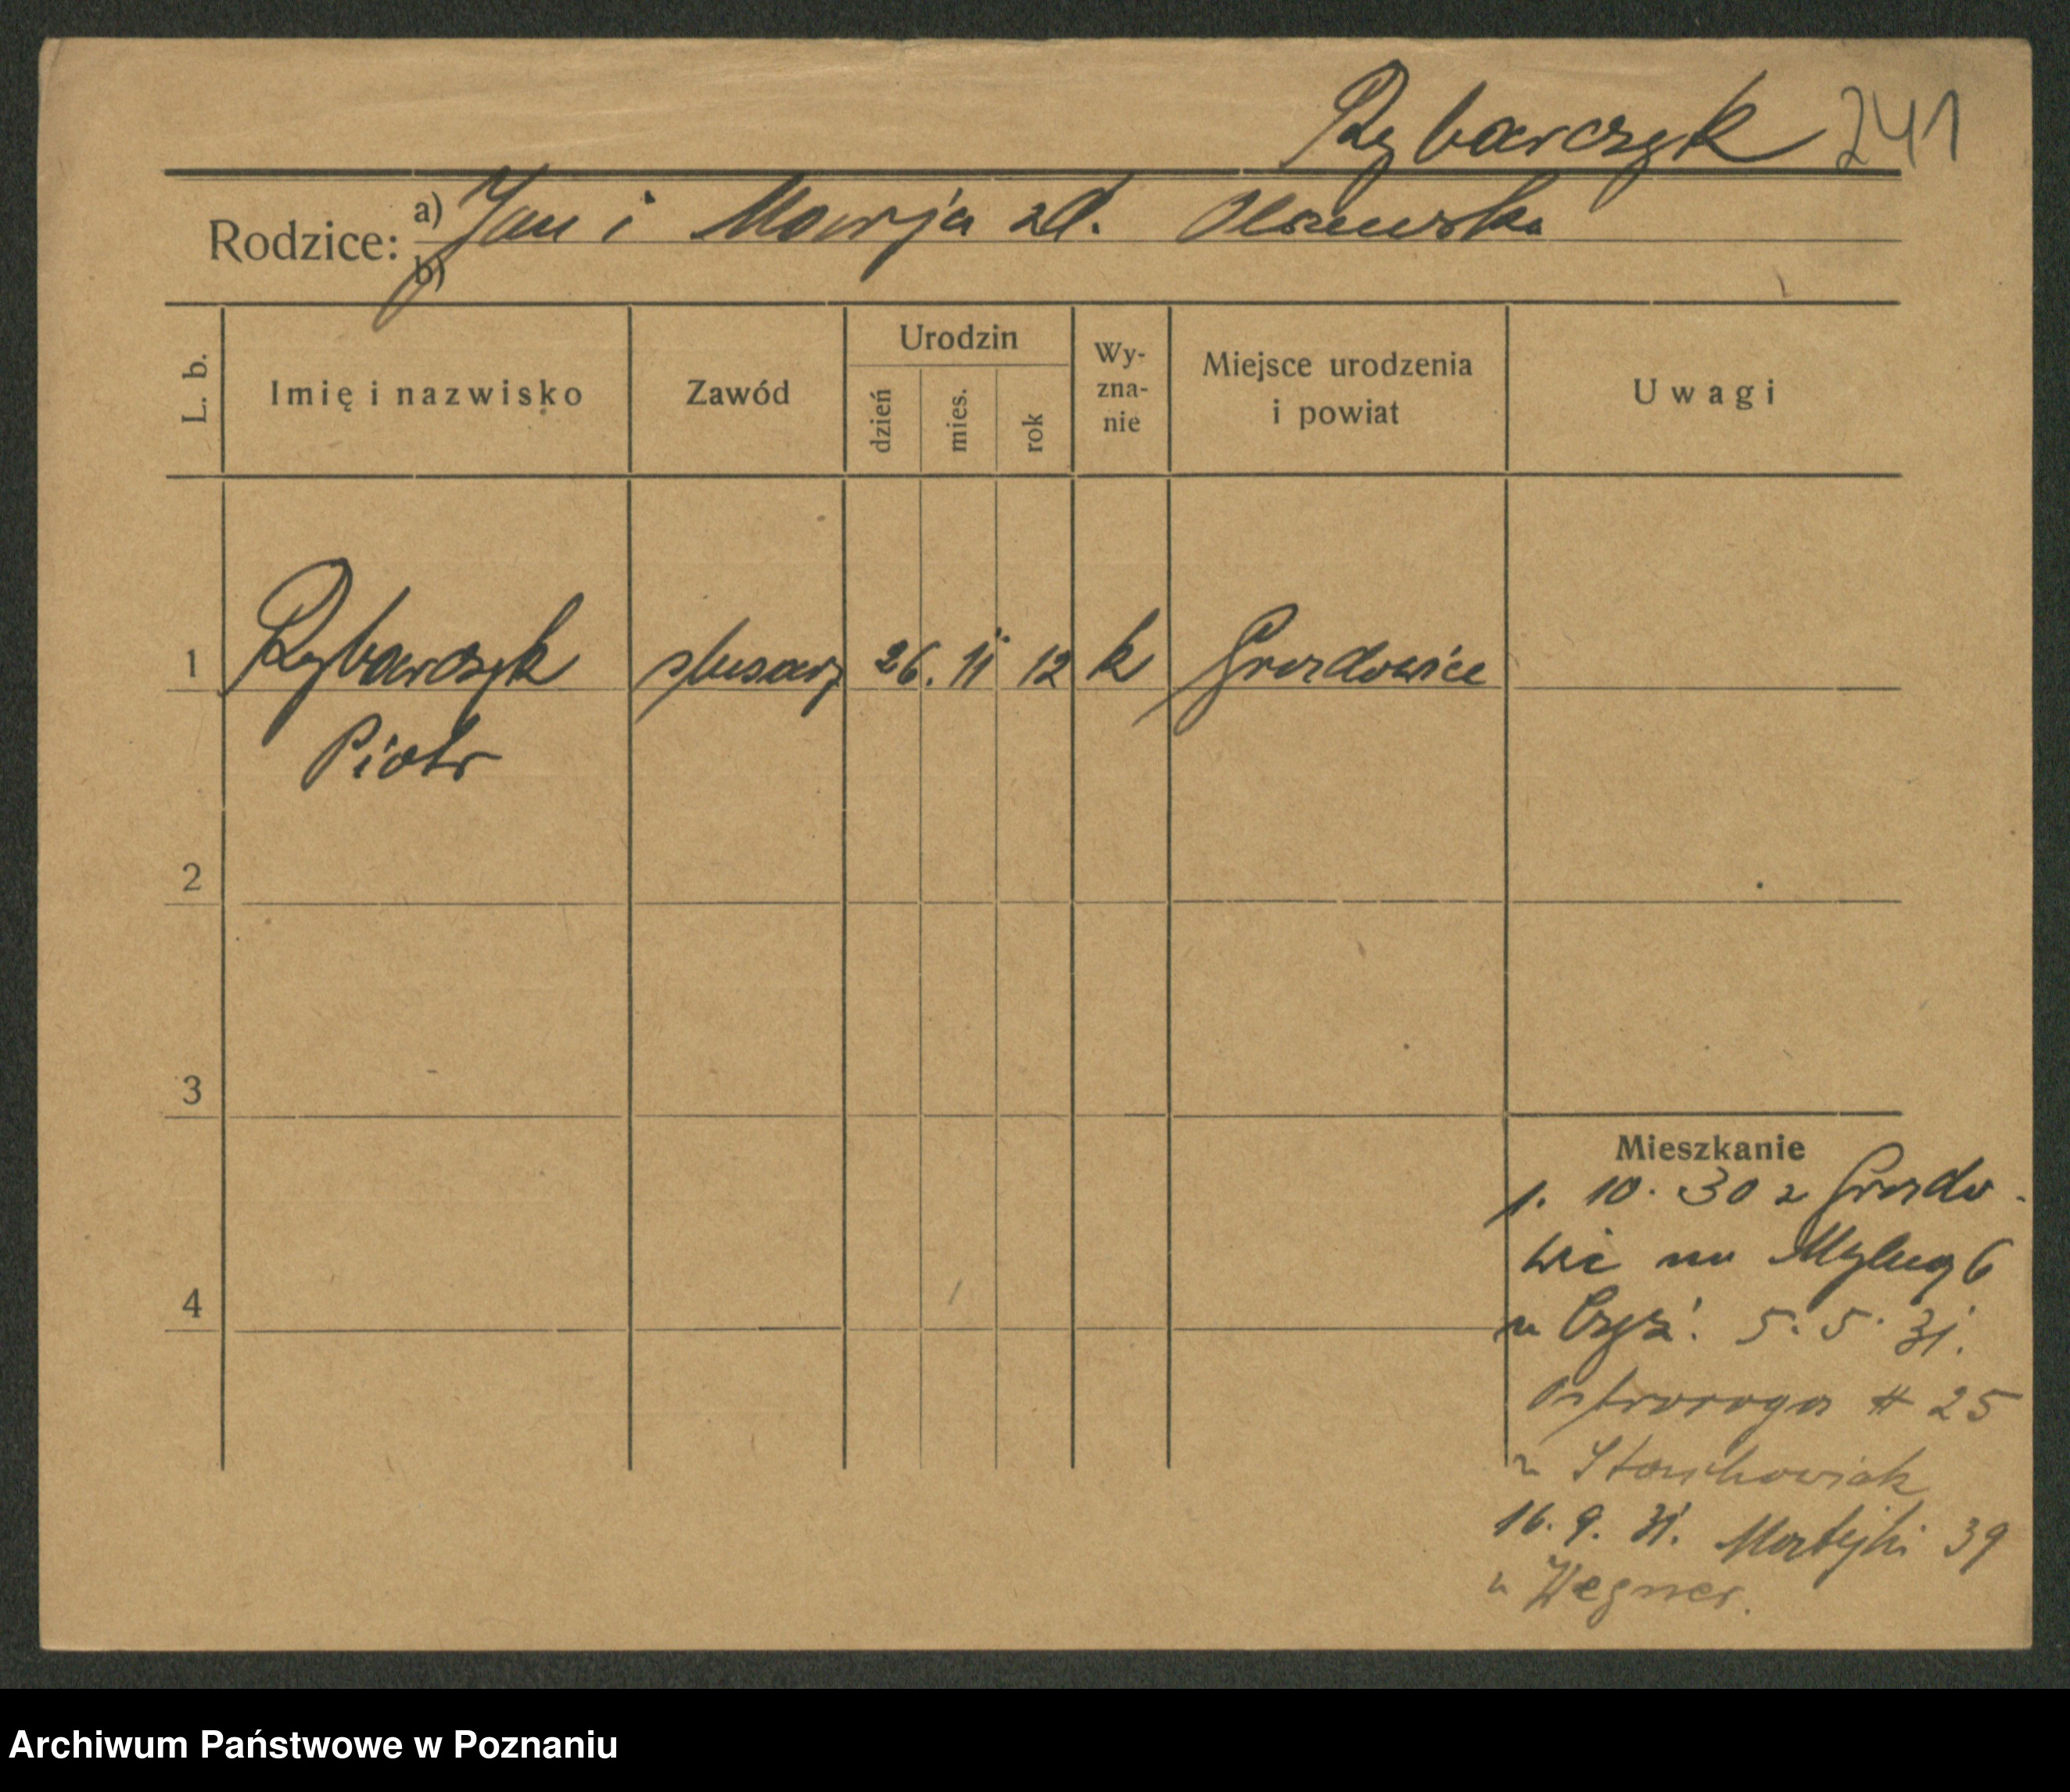 Rybarczyk 241
Rodzice: a) Jan i Marja zd. Olszewska
b)
L. b.
Imię i nazwisko
Zawód
Urodzin
dzień
mies.
rok
Wy-
zna-
nie
Miejsce urodzenia
i powiat
Uwagi
1 Rybarczyk ślusarz 26. 11 12 k
Piotr
2
3
Mieszkanie
1. 10. 30 z
wic na 6
4
u 5. 5. 31.
Ostroroga # 25
u Stachowiak
16. 9. 31. Matejki 39
u Wegner.
Archiwum Państwowe w Poznaniu